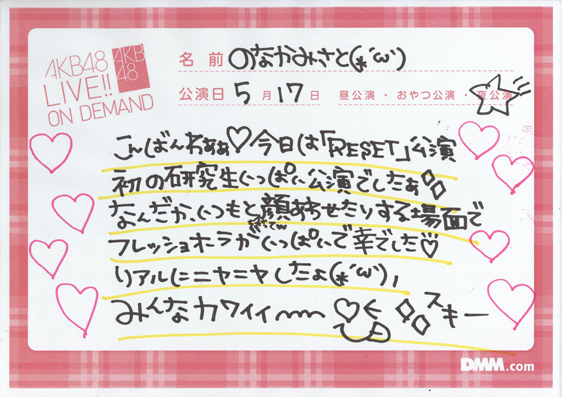 AKB48
LIVE!!
ON DEMAND
AKB
48
名前 のなかみさと(*´ω`)
公演日 5月17日 昼公演・おやつ公演・夜公演
こんばんわぁぁ♡今日は「RESET」公演
初の研究生いっぱい公演でしたぁ
なんだか、いつもと顔あわせたりする場面で
フレッシュオーラがいっぱいで幸でした♡
リアルにニヤニヤしたよ(*´ω`)、
みんなカワイィ〜〜 ♡ スキー
DMM.com